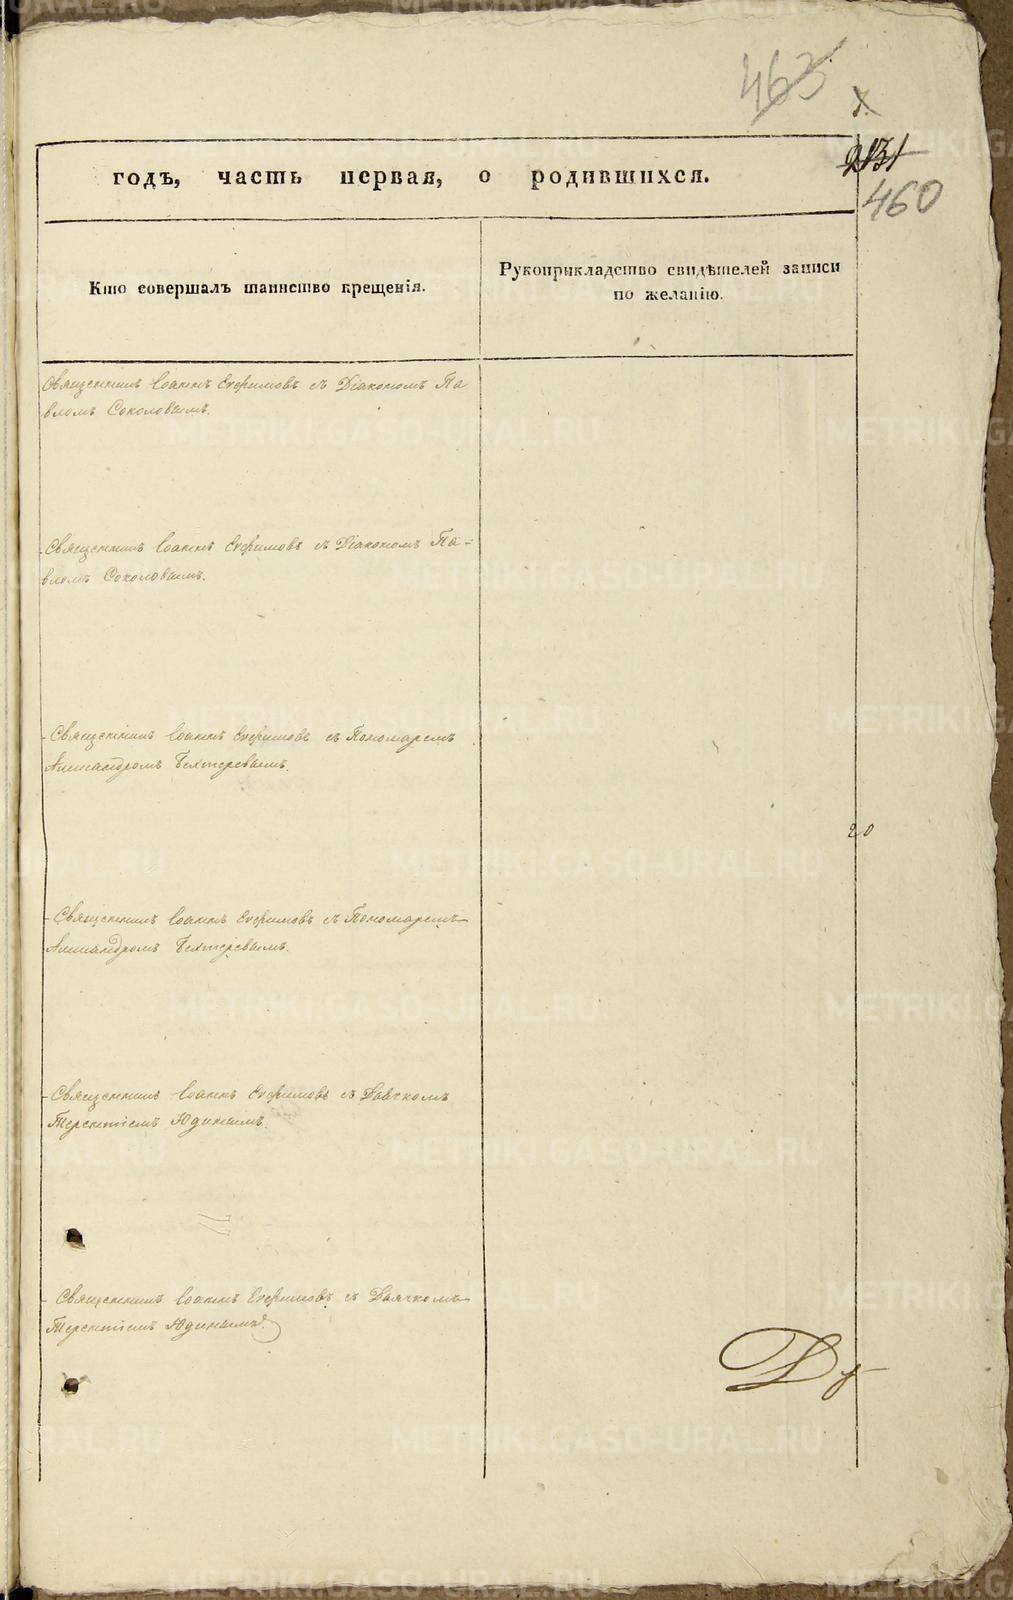 463
5.
2131
460
годъ, часть первая, о родившихся.
Кто совершалъ таинство крещенія.
Рукоприкладство свидѣтелей записи
по желанію.
Священникъ Іоаннъ Евфимовъ съ Діакономъ Па
вломъ Соколовымъ.
Священникъ Іоаннъ Евфимовъ съ Діакономъ Па-
вломъ Соколовымъ.
Священникъ Іоаннъ Евфимовъ съ Пономаремъ
Александромъ Бехтеревымъ.
20
Священникъ Іоаннъ Евфимовъ съ Пономаремъ
Александромъ Бехтеревымъ.
Священникъ Іоаннъ Евфимовъ съ Дьячкомъ
Терентіемъ Юдинымъ.
Священникъ Іоаннъ Евфимовъ съ Дьячкомъ
Терентіемъ Юдинымъ.
METRIKI.GASO-URAL.RU